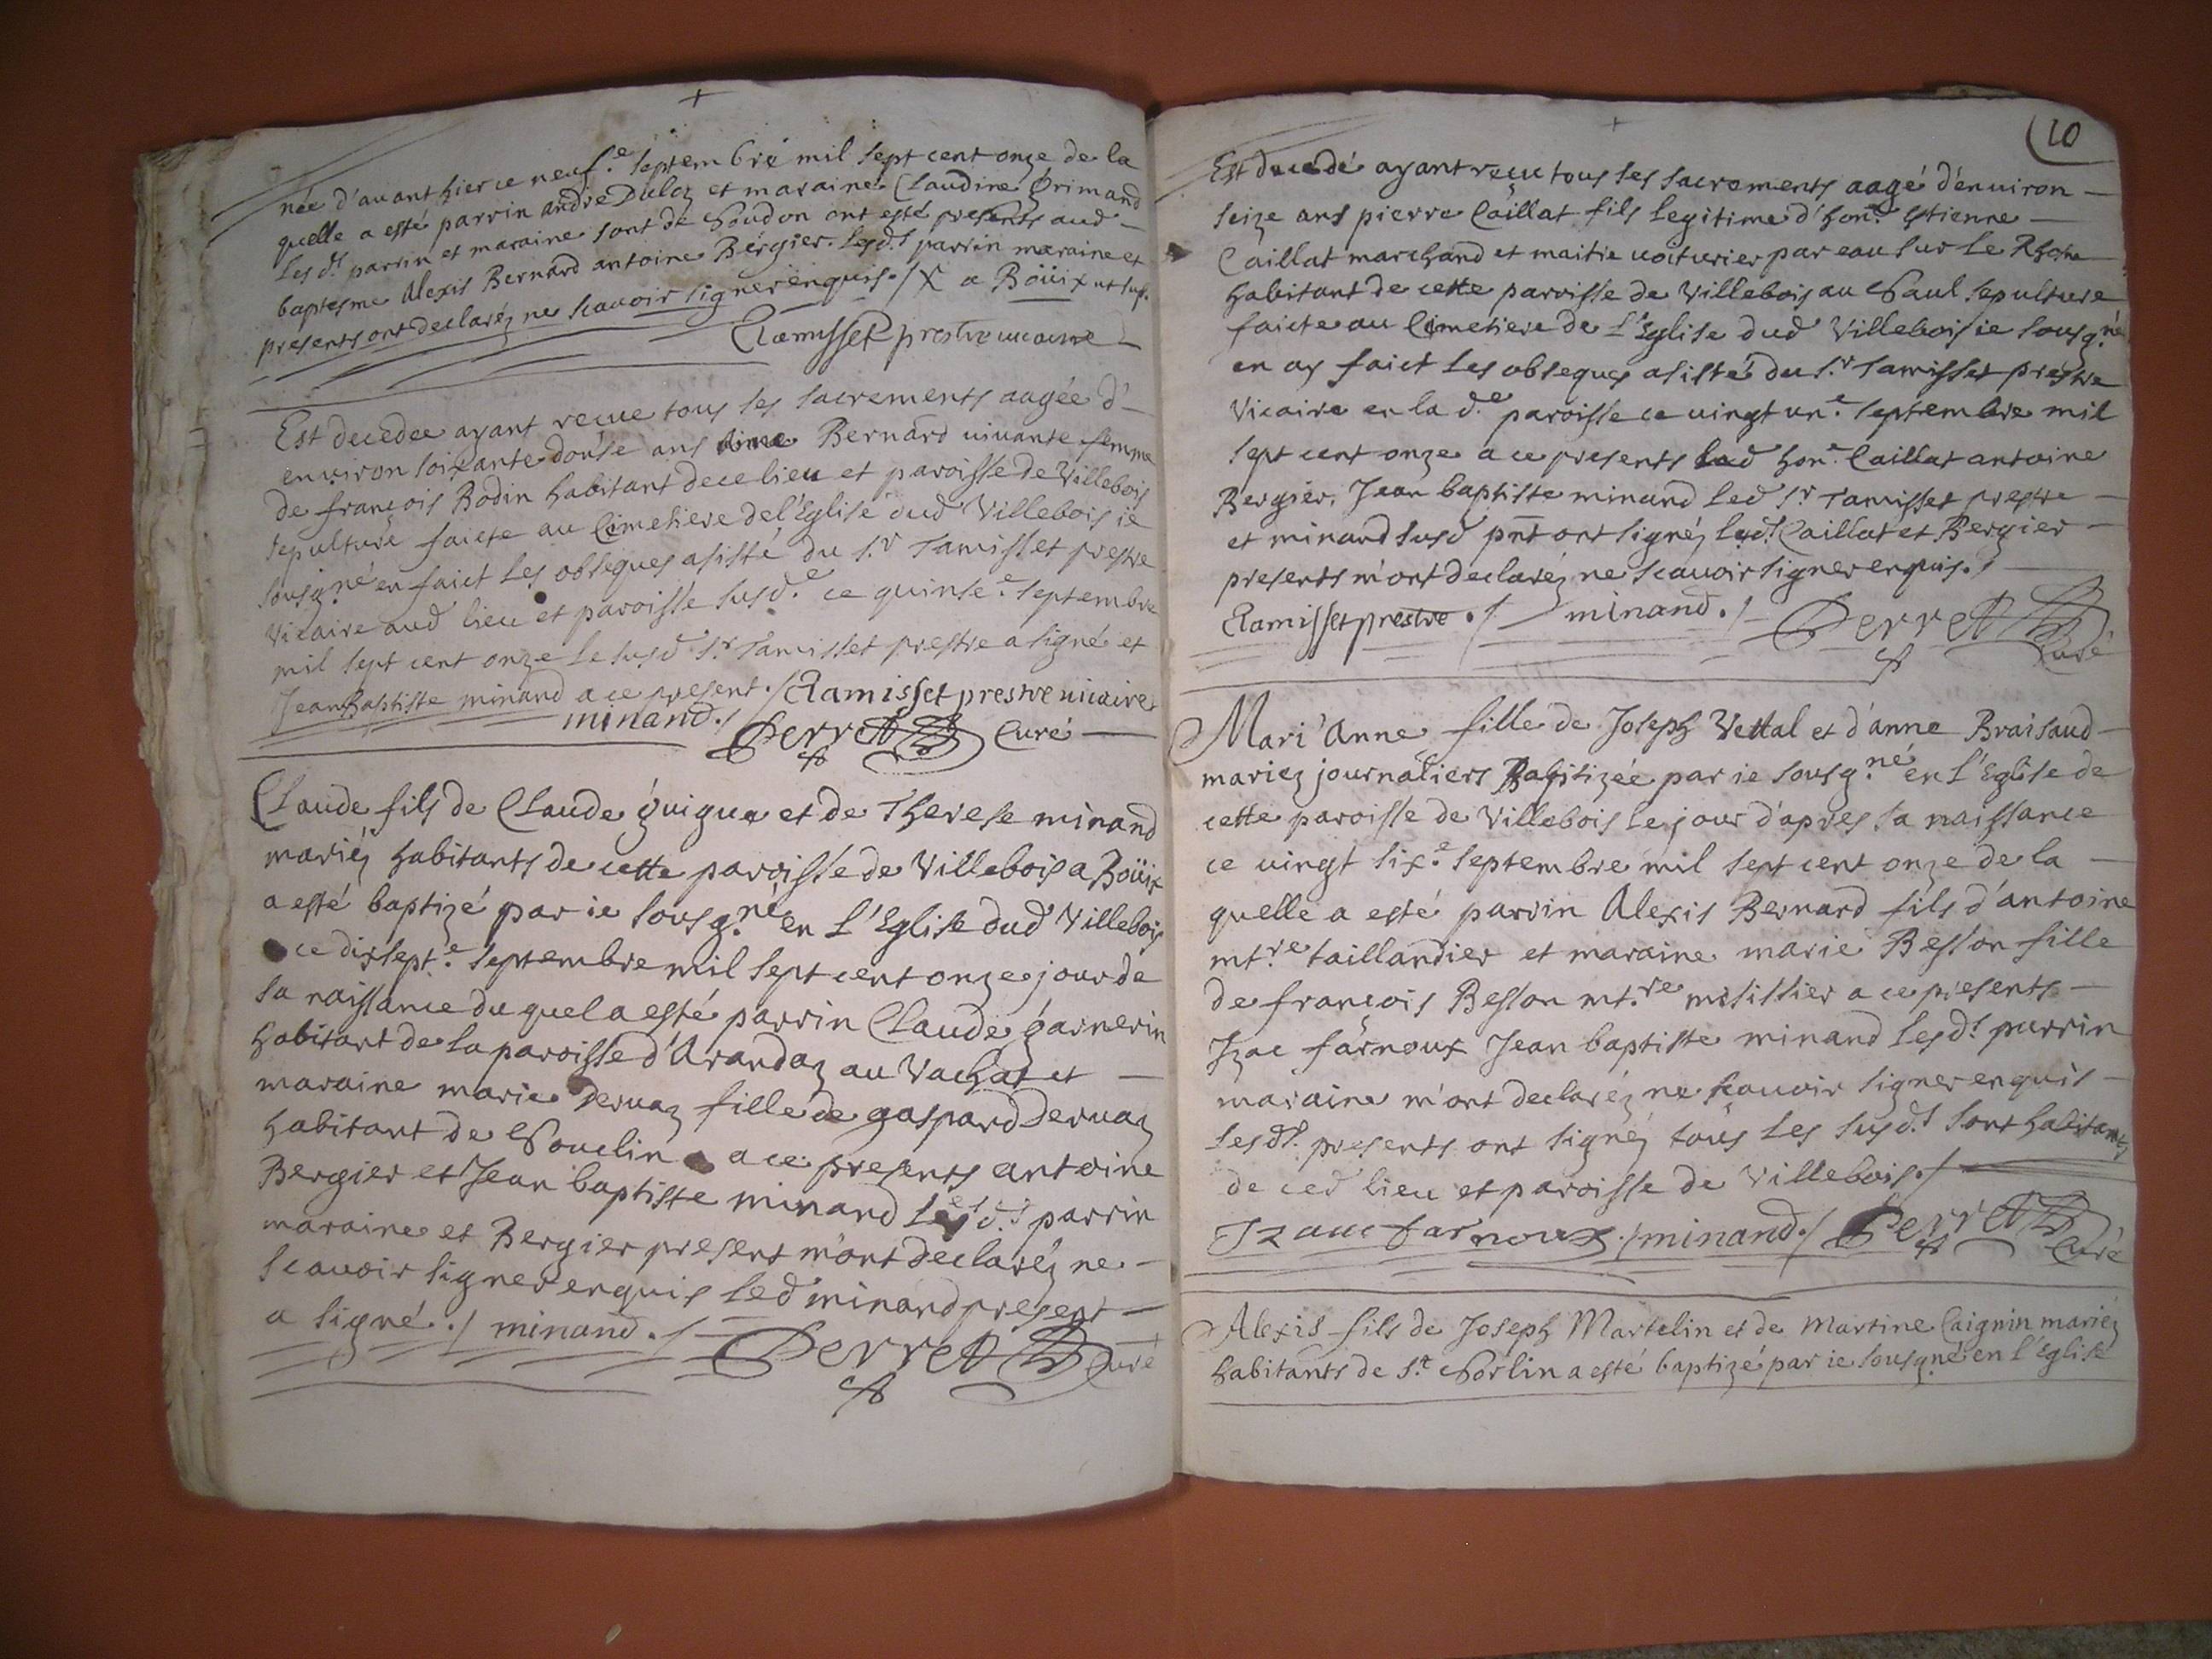 née d'avant hier ce neuf.e septembre mil sept cent onze de la
quelle a esté parrin andré Duloz et maraine Claudine Grimand
Les d.s parrin et maraine sont de Soudon ont esté presents aud
baptesme Alexis Bernard antoine Bergier. lesd.s parrin maraine et
presents ont declaréz ne scavoir signer enquis./ X a Boüix ut sus.
Tamisset prestre vicaire
Est decedee ayant recue tous les sacrements aagée d'
environ soixante douse ans Bernard vivante femme
de françois Bodin habitant de ce lieu et paroisse de Villebois
sepulture faicte au Cimetiere de l'Eglise dud Villebois ie
sousg.né en faict les obseques asisté du s.r Tamisset prestre
Vicaire aud lieu et paroisse susd.e ce quinse.e septembre
mil sept cent onze le susd s.r Tamisset prestre a signé et
Jean Baptiste minand a ce present./ Tamisset prestre vicaire
minand./ Perret Curé
Claude fils de Claude guigue et de Therese minand
mariéz habitants de cette paroisse de Villebois a Boüix
a esté baptizé par ie sousg.né en l'Eglise dud Villebois
ce dixsept.e septembre mil sept cent onze jour de
sa naissance du quel a esté parrin Claude garnerin
habitant de la paroisse d'Arandaz au Vachat et
maraine marie dervaz fille de gaspard dervaz
habitant de Souclin a ce presents antoine
Bergier et Jean baptiste minand Lesd.s parrin
maraine et Bergier present m'ont declaréz ne
scavoir signer enquis led minand present
a signé./ minand./
Perret Curé
10
Est decedé ayant reçeu tous les sacrements aagé d'environ
seize ans pierre Caillat fils legitime d'hon.e Etienne
Caillat marchand et maitre voiturier par eau sur le Rhone
habitant de cette paroisse de Villebois au Saul sepulture
faicte au Cimetiere de l'Eglise dud Villebois ie sousg.né
en ay faict les obseques asisté du s.r Tamisset prestre
Vicaire en la d.e paroisse ce vingt un.e septembre mil
sept cent onze a ce presents led hon.e Caillat antoine
Bergier, Jean baptiste minand led s.r Tamisset prestre
et minand susd pnt ont signéz lesd.s Caillat et Bergier
presents m'ont declaréz ne scavoir signer enquis./
Tamisset prestre./ minand./ Perret
Curé
Mari'Anne fille de Joseph Vettal et d'anne Braisaud
mariez journaliers Baptizée par ie sousg.né en l'Eglise de
cette paroisse de Villebois le jour d'apres sa naissance
ce vingt six.e septembre mil sept cent onze de la
quelle a esté parrin Alexis Bernard fils d'antoine
mt.re taillandier et maraine marie Besson fille
de françois Besson mt.re a ce presents
Izac farnoux Jean baptiste minand lesd.s parrin
maraine m'ont declaréz ne scavoir signer enquis
lesd.s presents ont signéz tous les susd.s sont habitants
de ced lieu et paroisse de Villebois./
Izaac farnoux./ minand./ Perret
Curé
Alexis fils de Joseph Martelin et de Martine Caignin mariéz
habitants de s.t Sorlin a esté baptizé par ie sousg.né en l'Eglise